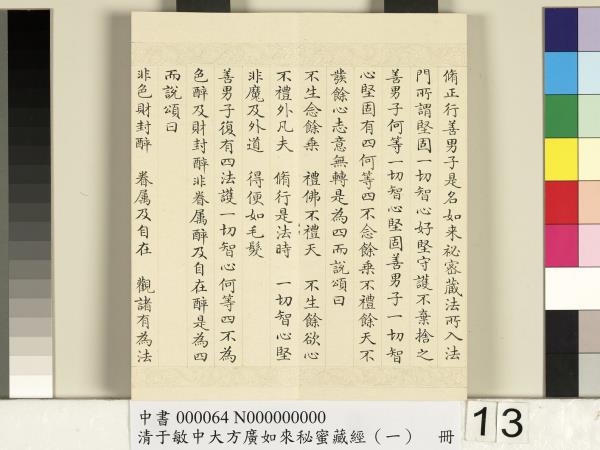 脩正行善男子是名如來祕密藏法所入法
門所謂堅固一切智心好堅守護不棄捨之
善男子何等一切智心堅固善男子一切智
心堅固有四何等四不念餘乗不禮餘天不
發餘心志意無轉是為四而說頌曰
不生念餘乗　禮佛不禮天　不生餘欲心
不禮外凡夫　脩行是法時　一切智心堅
非魔及外道　得便如毛髮
善男子復有四法護一切智心何等四不為
色醉及財封醉非眷属醉及自在醉是為四
而說頌曰
非色財封醉　眷属及自在　觀諸有為法
中書 000064 N000000000
清于敏中大方廣如來秘蜜藏經（一）　冊
13